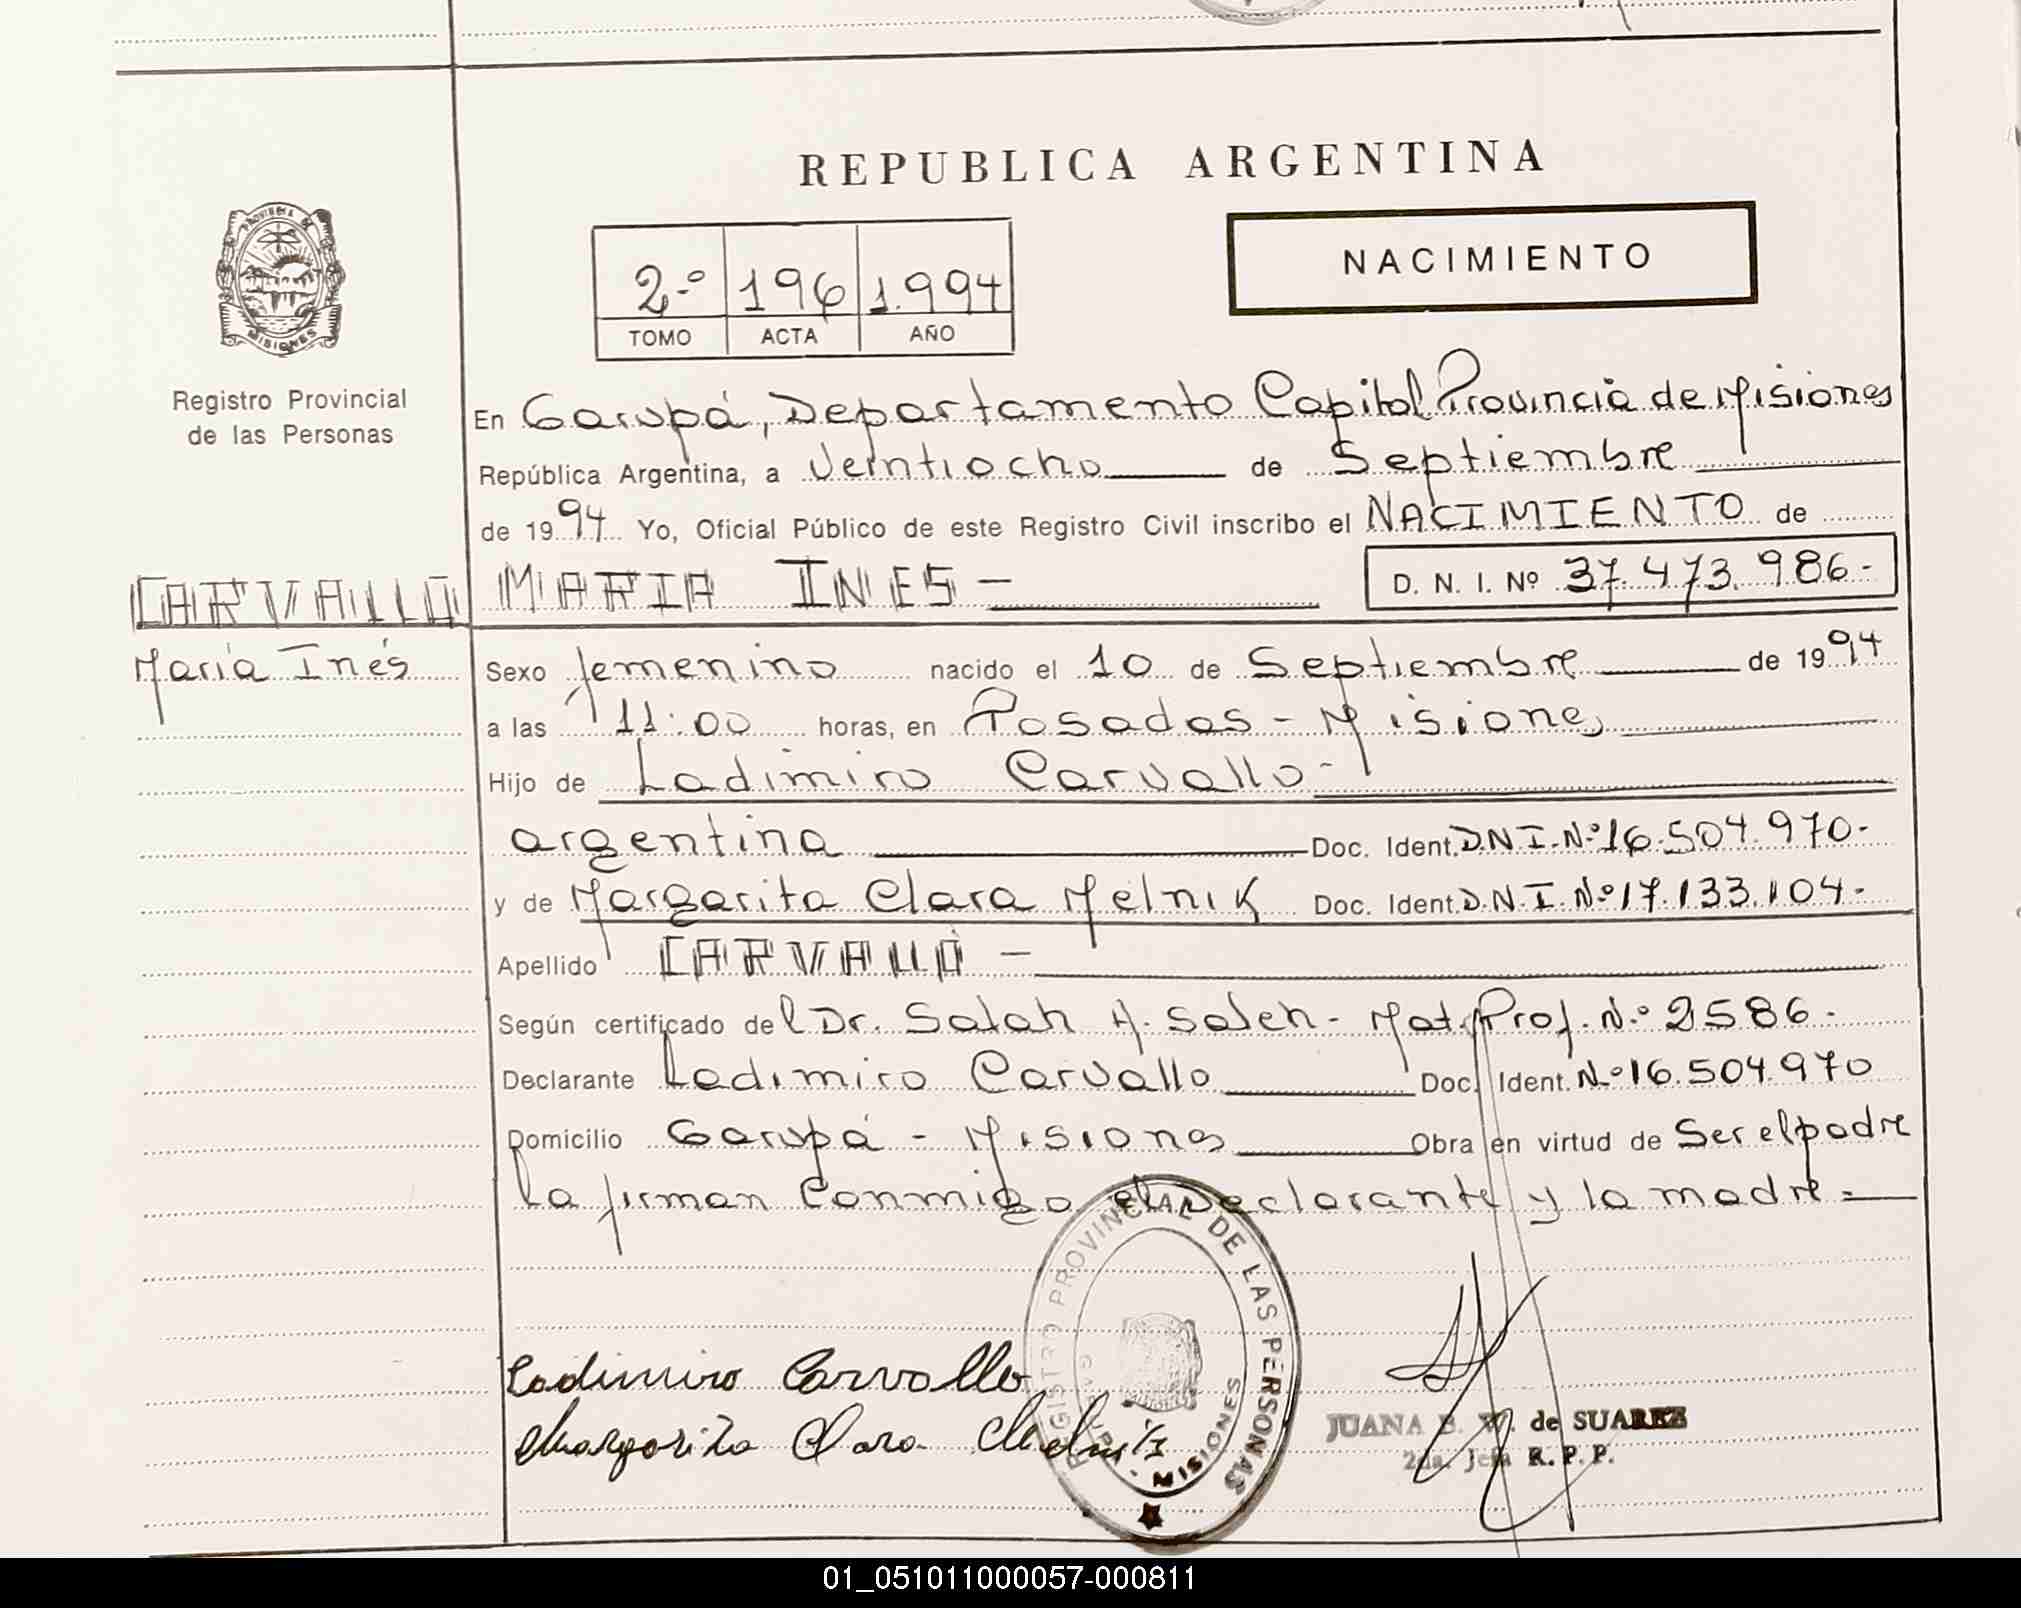 REPUBLICA ARGENTINA
NACIMIENTO
2º 196 1.994
TOMO ACTA AÑO
PROVINCIA DE
MISIONES
Registro Provincial
de las Personas
En Garupá, Departamento Capital Provincia de Misiones
República Argentina, a Veintiocho de Septiembre
de 1994 Yo, Oficial Público de este Registro Civil inscribo el NACIMIENTO de
CARVALLO MARIA INES -
D. N. I. Nº 37.473.986-
María Inés
Sexo femenino nacido el 10 de Septiembre de 1994
a las 11:00 horas, en Posadas - Misiones
Hijo de Ladimiro Carvallo-
argentina Doc. Ident. D.N.I. Nº 16.504.970-
y de Margarita Clara Melnik Doc. Ident. D.N.I. Nº 17.133.104-
Apellido CARVALLO -
Según certificado del Dr. Salah A. Saleh - Mat. Prof. Nº 2586-
Declarante Ladimiro Carvallo Doc. Ident. Nº 16.504.970
Domicilio Garupá - Misiones Obra en virtud de Ser el padre
La firman Conmigo el Declarante y la madre=
REGISTRO PROVINCIAL DE LAS PERSONAS
MISIONES
Ladimiro Carvallo
Margarita Clara Melnik
JUANA B. W. de SUAREZ
2da. Jefa R. P. P.
01_051011000057-000811